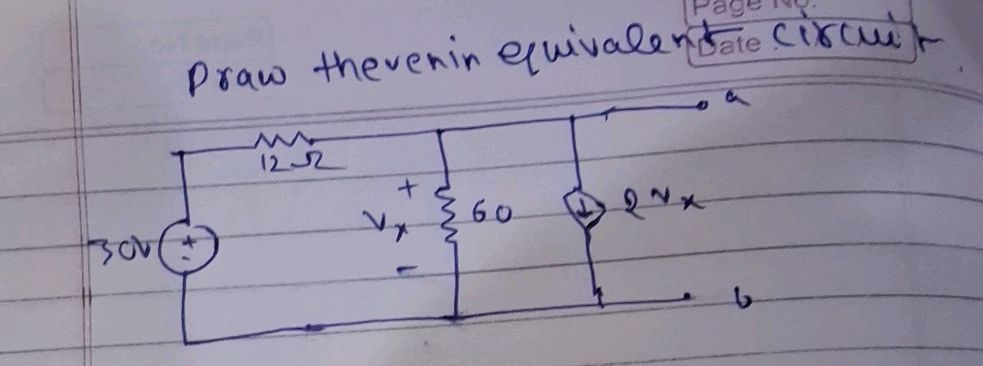 Page No.
Date
Draw thevenin equivalent circuit
a
12Ω
+
Vx
60
2Vx
30V
+
-
-
b